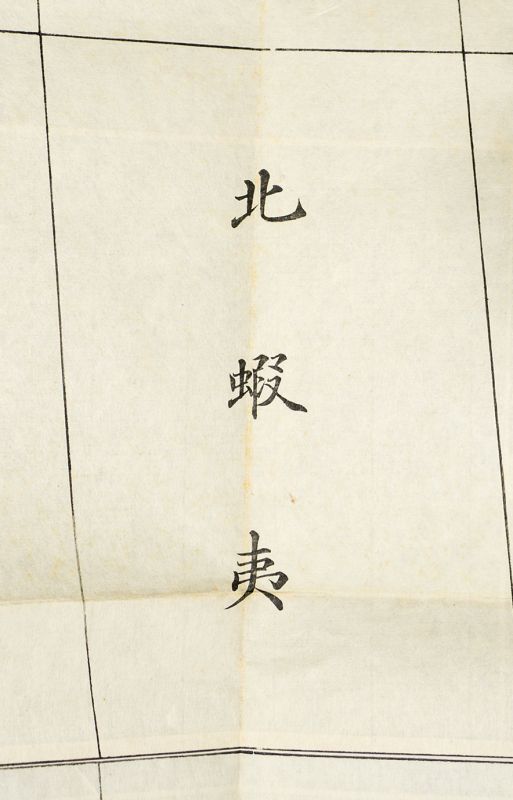 北蝦夷